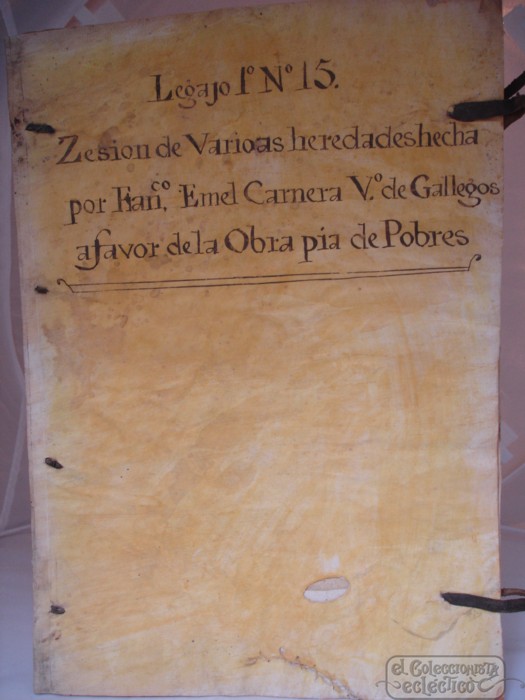 Legajo 1º Nº 15.
Zesion de Varioas heredades hecha
por Fran.co Emel Carnera V.º de Gallegos
a favor de la Obra pia de Pobres
el Coleccionista
ecléctico